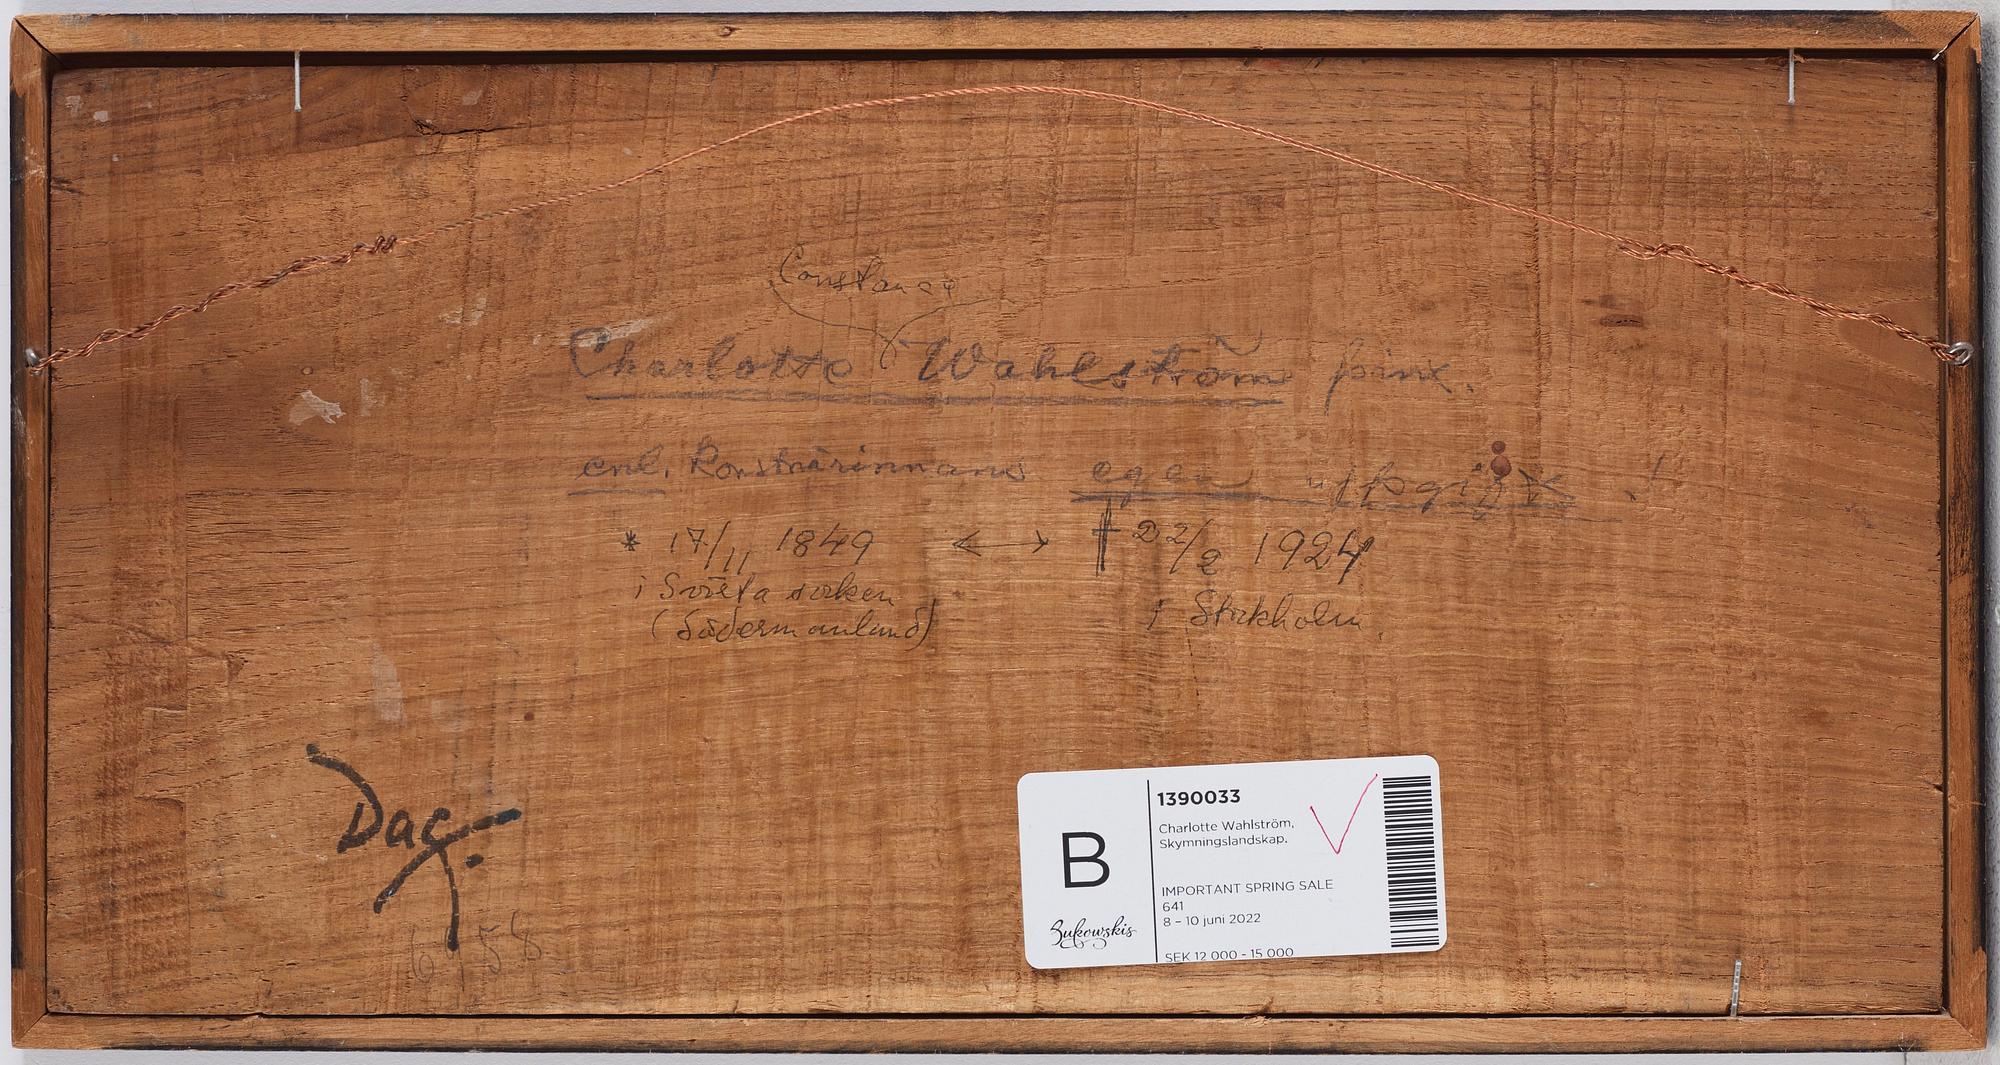 Constance
Charlotte Wahlström pinx.
enl. Konstnärinnans egen uppgift!
* 17/11 1849 ⟷ † 22/2 1924
i Svärta socken i Stockholm.
(Södermanland)
Dag
6958
B
Bukowskis
1390033
Charlotte Wahlström,
Skymningslandskap.
IMPORTANT SPRING SALE
641
8 – 10 juni 2022
SEK 12 000 - 15 000